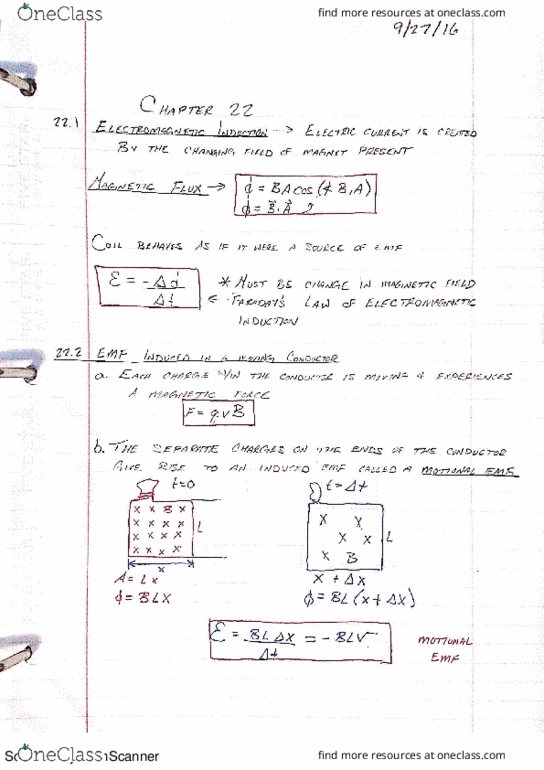 OneClass
find more resources at oneclass.com
9/27/16
CHAPTER 22
22.1 ELECTROMAGNETIC INDUCTION --> ELECTRIC CURRENT IS CREATED
BY THE CHANGING FIELD OF MAGNET PRESENT
MAGNETIC FLUX → ϕ = BA cos (∡ B,A)
ϕ = B⃗·A⃗
COIL BEHAVES AS IF IT WERE A SOURCE OF EMF
ℰ = -Δϕ/Δt * MUST BE CHANGE IN MAGNETIC FIELD
← FARADAY'S LAW OF ELECTROMAGNETIC
INDUCTION
22.2 EMF INDUCED IN A MOVING CONDUCTOR
a. EACH CHARGE W/IN THE CONDUCTOR IS MOVING & EXPERIENCES
A MAGNETIC FORCE
F = qvB
b. THE SEPARATE CHARGES ON THE ENDS OF THE CONDUCTOR
GIVE RISE TO AN INDUCED EMF CALLED A MOTIONAL EMF
t=0 t=Δt
x x B x
x x x x
x x x x
x x x x
L
x
x x
x x
x B
L
A = Lx x + Δx
ϕ = BLX ϕ = BL(x + Δx)
ℰ = BLΔx/Δt = -BLV MOTIONAL
EMF
OneClass
Scanner
find more resources at oneclass.com